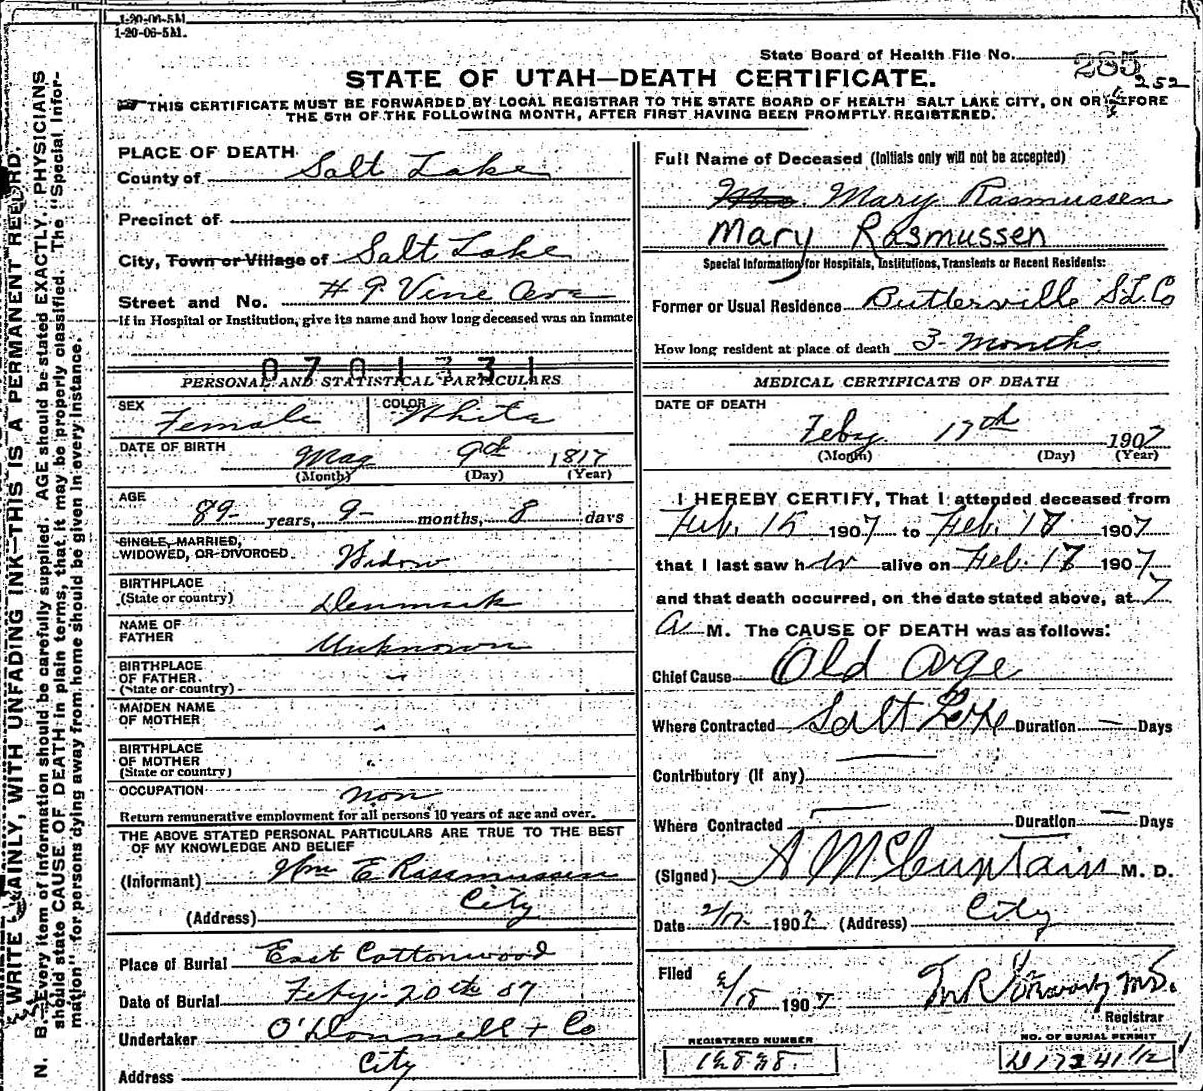 1-20-06-5M.
1-20-06-5M.
State Board of Health File No. 285
252
STATE OF UTAH—DEATH CERTIFICATE.
THIS CERTIFICATE MUST BE FORWARDED BY LOCAL REGISTRAR TO THE STATE BOARD OF HEALTH SALT LAKE CITY, ON OR BEFORE
THE 5TH OF THE FOLLOWING MONTH, AFTER FIRST HAVING BEEN PROMPTLY REGISTERED.
WRITE PLAINLY, WITH UNFADING INK—THIS IS A PERMANENT RECORD.
N. B.—Every item of information should be carefully supplied. AGE should be stated EXACTLY. PHYSICIANS
should state CAUSE OF DEATH in plain terms, that it may be properly classified. The "Special Infor-
mation" for persons dying away from home should be given in every instance.
PLACE OF DEATH
County of Salt Lake
Precinct of
City, Town or Village of Salt Lake
Street and No. # 9 Vine Ave
If in Hospital or Institution, give its name and how long deceased was an inmate
0701331
PERSONAL AND STATISTICAL PARTICULARS
SEX Female COLOR White
DATE OF BIRTH May 9th 1817
(Month) (Day) (Year)
AGE 89 years, 9 months, 8 days
SINGLE, MARRIED,
WIDOWED, OR DIVORCED Widow
BIRTHPLACE
(State or country) Denmark
NAME OF
FATHER Unknown
BIRTHPLACE
OF FATHER
(State or country) -
MAIDEN NAME
OF MOTHER -
BIRTHPLACE
OF MOTHER
(State or country)
OCCUPATION non
Return remunerative employment for all persons 10 years of age and over.
THE ABOVE STATED PERSONAL PARTICULARS ARE TRUE TO THE BEST
OF MY KNOWLEDGE AND BELIEF
(Informant) Wm E Rassmussen
(Address) City
Place of Burial East Cottonwood
Date of Burial Feby 20th 07
Undertaker O'Donnell & Co
Address City
Full Name of Deceased (Initials only will not be accepted)
Mrs. Mary Rasmussen
Mary Rasmussen
Special Information for Hospitals, Institutions, Transients or Recent Residents:
Former or Usual Residence Butlerville S L Co
How long resident at place of death 3- Months
MEDICAL CERTIFICATE OF DEATH
DATE OF DEATH
Feby 17th 1907
(Month) (Day) (Year)
I HEREBY CERTIFY, That I attended deceased from
Feb. 15 1907 to Feb. 17 1907
that I last saw her alive on Feb. 17 1907
and that death occurred, on the date stated above, at 7
a M. The CAUSE OF DEATH was as follows:
Chief Cause Old Age
Where Contracted Salt Lake Duration — Days
Contributory (If any)
Where Contracted — Duration — Days
(Signed) M. D.
Date 2/17 1907 (Address) City
Filed 2/18 1907 M.D.
Registrar
REGISTERED NUMBER
NO. OF BURIAL PERMIT